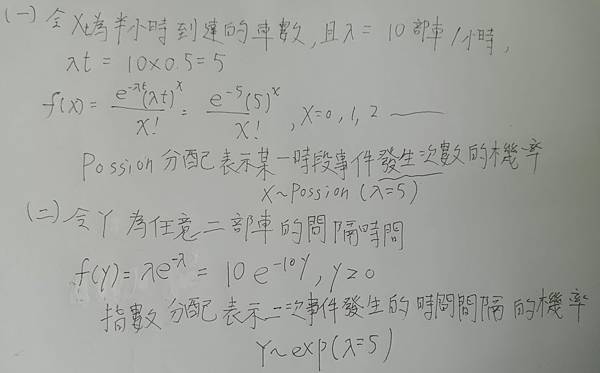 (一) 令 Xt為半小時到達的車數, 且λ = 10部車/小時,
λt = 10×0.5 = 5
f(x) = e^-λt(λt)^x / x! = e^-5(5)^x / x! , x=0, 1, 2 ——
Possion 分配表示某一時段事件發生次數的機率
X~Possion (λ=5)
(二) 令 Y 為任意二部車的間隔時間
f(y) = λe^-λ = 10 e^-10y, y≥0
指數分配表示二次事件發生的時間間隔的機率
Y~exp(λ=5)